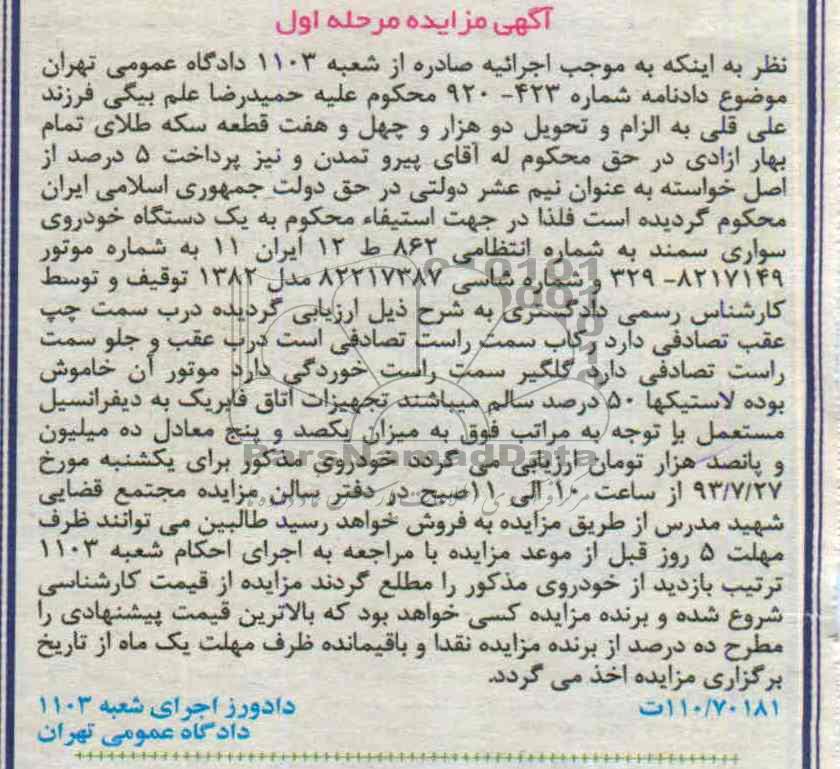 آگهی مزایده مرحله اول
نظر به اینکه به موجب اجرائیه صادره از شعبه ۱۱۰۳ دادگاه عمومی تهران
موضوع دادنامه شماره ۴۲۳- ۹۲۰ محکوم علیه حمیدرضا علم بیگی فرزند
علی قلی به الزام و تحویل دو هزار و چهل و هفت قطعه سکه طلای تمام
بهار ازادی در حق محکوم له آقای پیرو تمدن و نیز پرداخت ۵ درصد از
اصل خواسته به عنوان نیم عشر دولتی در حق دولت جمهوری اسلامی ایران
محکوم گردیده است فلذا در جهت استیفاء محکوم به یک دستگاه خودروی
سواری سمند به شماره انتظامی ۸۶۲ ط ۱۲ ایران ۱۱ به شماره موتور
۸۲۱۷۱۴۹- ۳۲۹ و شماره شاسی ۸۲۲۱۷۳۸۷ مدل ۱۳۸۲ توقیف و توسط
کارشناس رسمی دادگستری به شرح ذیل ارزیابی گردیده درب سمت چپ
عقب تصادفی دارد رکاب سمت راست تصادفی است درب عقب و جلو سمت
راست تصادفی دارد گلگیر سمت راست خوردگی دارد موتور آن خاموش
بوده لاستیکها ۵۰ درصد سالم میباشند تجهیزات اتاق فابریک به دیفرانسیل
مستعمل با توجه به مراتب فوق به میزان یکصد و پنج معادل ده میلیون
و پانصد هزار تومان ارزیابی می گردد خودروی مذکور برای یکشنبه مورخ
۹۳/۷/۲۷ از ساعت ۱۰ الی ۱۱صبح در دفتر سالن مزایده مجتمع قضایی
شهید مدرس از طریق مزایده به فروش خواهد رسید طالبین می توانند ظرف
مهلت ۵ روز قبل از موعد مزایده با مراجعه به اجرای احکام شعبه ۱۱۰۳
ترتیب بازدید از خودروی مذکور را مطلع گردند مزایده از قیمت کارشناسی
شروع شده و برنده مزایده کسی خواهد بود که بالاترین قیمت پیشنهادی را
مطرح ده درصد از برنده مزایده نقدا و باقیمانده ظرف مهلت یک ماه از تاریخ
برگزاری مزایده اخذ می گردد.
۱۱۰/۷۰۱۸۱ت
دادورز اجرای شعبه ۱۱۰۳
دادگاه عمومی تهران
ParsNamadData